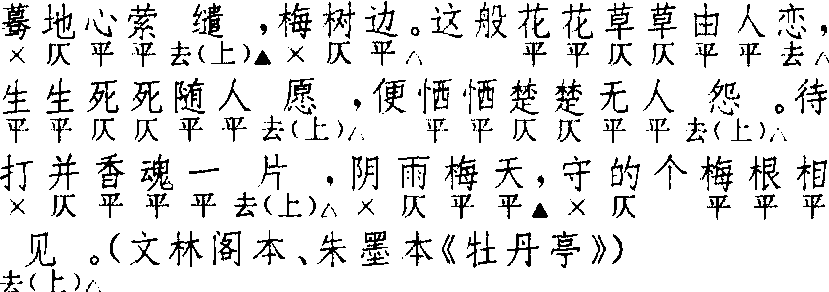 蓦地心萦缱,梅树边。这般花花草草由人恋,
× 仄 平 平 去(上)▲ × 仄 平△ 平 平 仄 仄 平 平 去△
生生死死随人愿,便恓恓楚楚无人怨。待
平 平 仄 仄 平 平 去(上)△ 平 平 仄 仄 平 平 去(上)△
打并香魂一片,阴雨梅天,守的个梅根相
× 仄 平 平 平 去(上)△ × 仄 平 平▲ × 仄 平 平 平
见。(文林阁本、朱墨本《牡丹亭》)
去(上)△